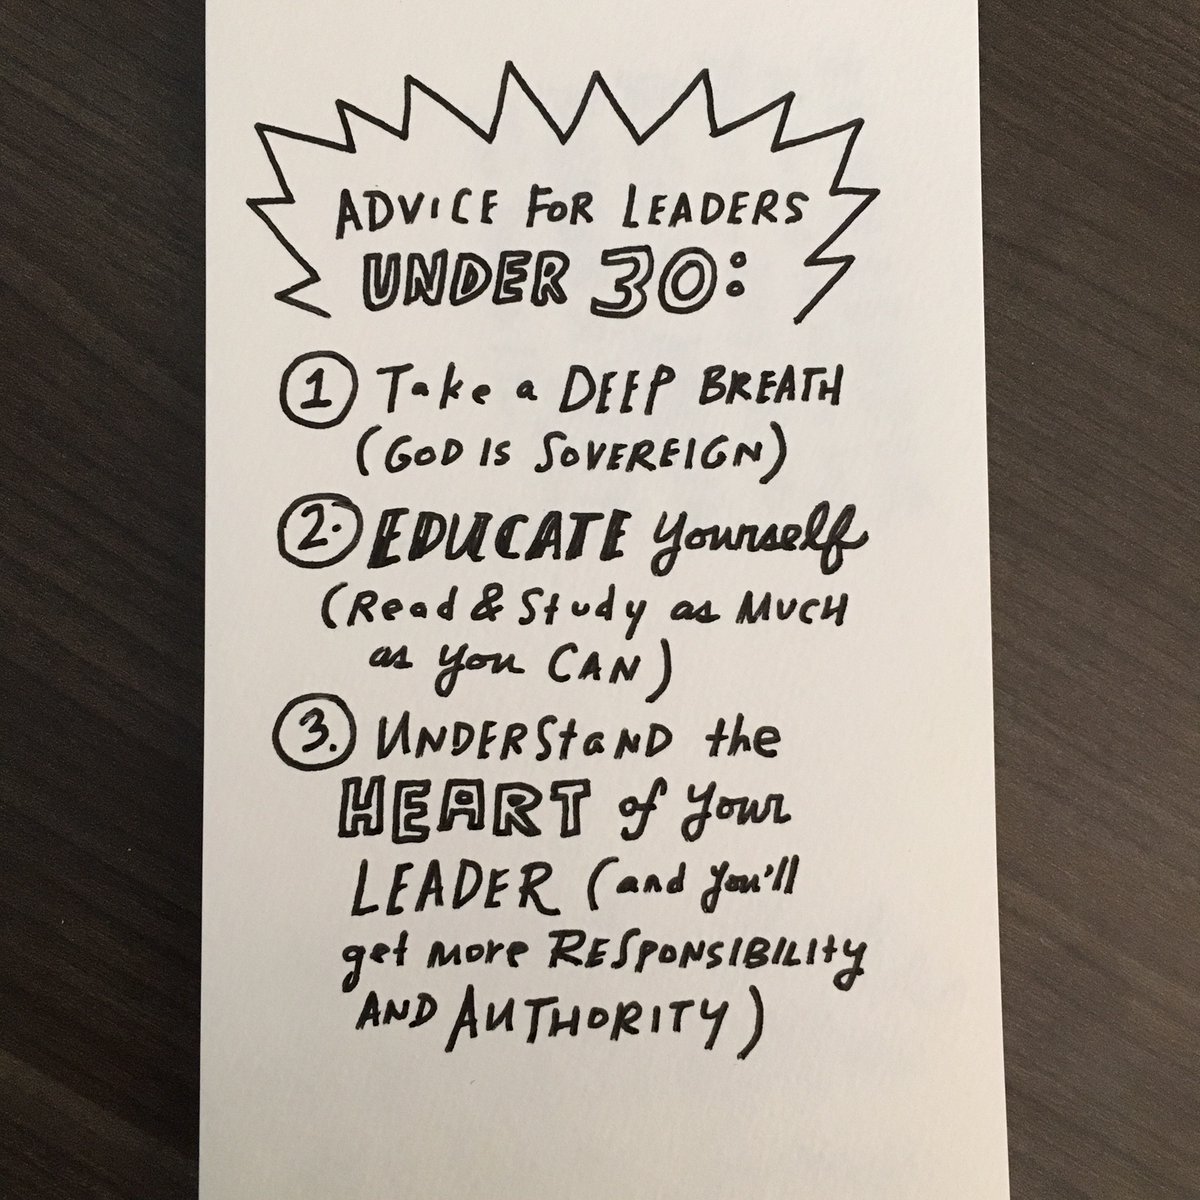 ADVICE FOR LEADERS
UNDER 30:
1 Take a DEEP BREATH
(GOD IS SOVEREIGN)
2. EDUCATE yourself
(Read & Study as MUCH
as you CAN)
3. UNDERStaND the
HEART of your
LEADER (and you'll
get more RESPONSIBILITy
AND AUTHORITY)